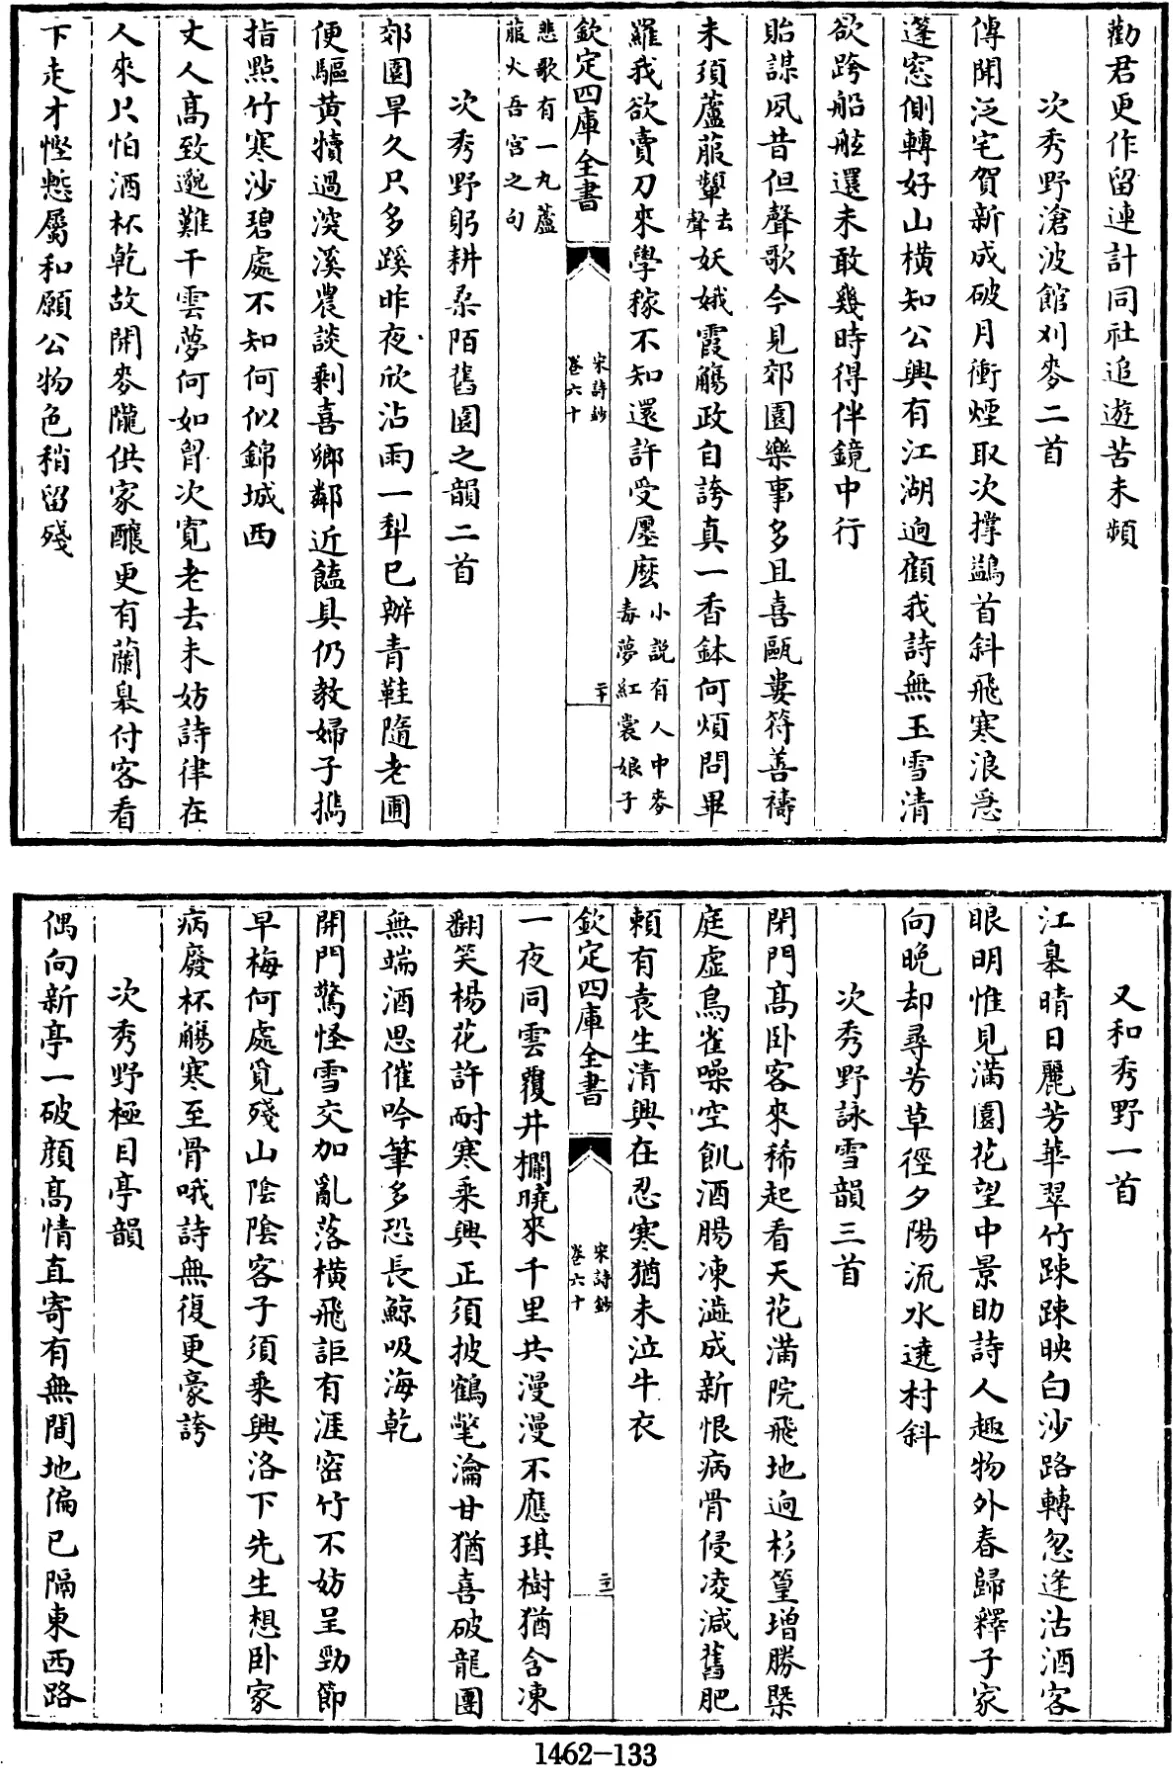 勸君更作留連計同社追遊苦未頻
次秀野滄波館刈麥二首
傳聞泛宅賀新成破月衝煙取次撑鷁首斜飛寒浪急
蓬窓側轉好山橫知公興有江湖逈顧我詩無玉雪清
欲跨船舷還未敢幾時得伴鏡中行
貽謀夙昔但聲歌今見郊園樂事多且喜甌婁符善禱
未須蘆菔顰去聲妖娥霞觴政自誇真一香鉢何煩問畢
羅我欲賣刀來學稼不知還許受廛麽小說有人中麥毒夢紅裳娘子
欽定四庫全書 宋詩鈔 卷六十 二十
悲歌有一丸蘆菔火吾宮之句
次秀野躬耕桑陌舊園之韻二首
郊園旱久只多蹊昨夜欣沾雨一犁已辦青鞋隨老圃
便驅黄犢過深溪農談剩喜鄉鄰近饁具仍教婦子携
指點竹寒沙碧處不知何似錦城西
丈人髙致邈難干雲夢何如胷次寛老去未妨詩律在
人來只怕酒杯乾故開麥隴供家釀更有蘭皋付客看
下走才慳慙屬和願公物色稍留殘
又和秀野一首
江皋晴日麗芳華翠竹踈踈映白沙路轉忽逢沽酒客
眼明惟見滿園花望中景助詩人趣物外春歸釋子家
向晚却尋芳草徑夕陽流水遶村斜
次秀野詠雪韻三首
閉門髙卧客來稀起看天花滿院飛地逈杉篁增勝槩
庭虛鳥雀噪空飢酒腸凍澁成新恨病骨侵凌減舊肥
頼有袁生清興在忍寒猶未泣牛衣
欽定四庫全書 宋詩鈔 卷六十 二十一
一夜同雲覆井欄曉來千里共漫漫不應琪樹猶含凍
翻笑楊花許耐寒乘興正須披鶴氅瀹甘猶喜破龍團
無端酒思催吟筆多恐長鯨吸海乾
開門驚怪雪交加亂落橫飛詎有涯密竹不妨呈勁節
早梅何處覓殘山陰陰客子須乘興洛下先生想卧家
病廢杯觴寒至骨哦詩無復更豪誇
次秀野極目亭韻
偶向新亭一破顔髙情直寄有無間地偏已隔東西路
1462-133